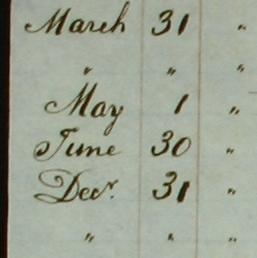 March 31 "
" " "
May 1 "
June 30 "
Decr. 31 "
" " "